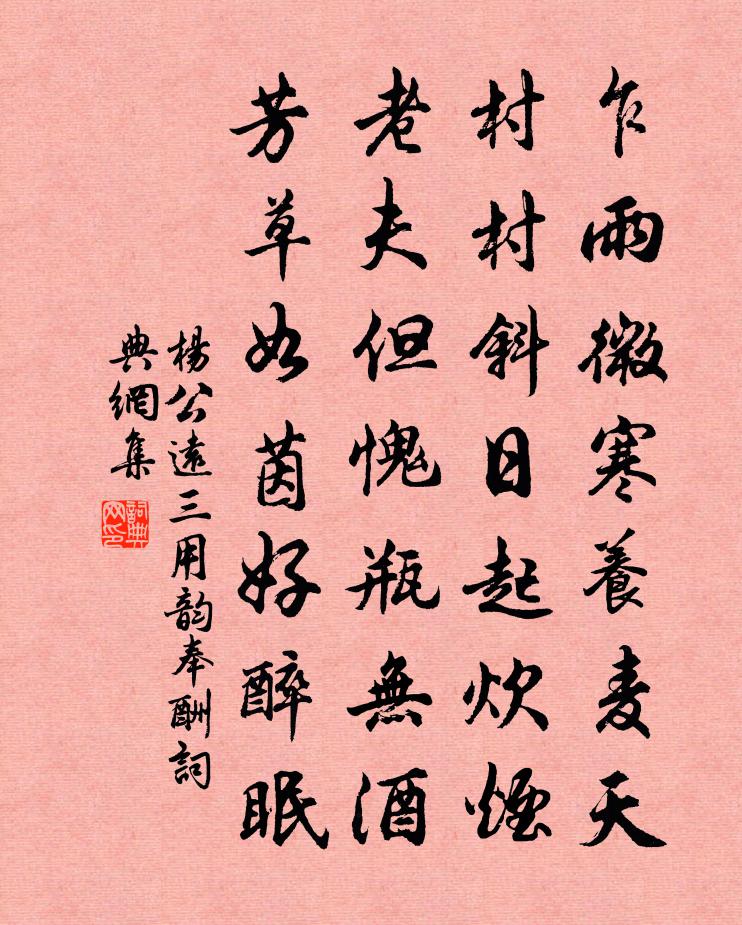 乍雨微寒養麦天
村村斜日起炊煙
老夫但愧瓶無酒
芳草如茵好醉眠
楊公遠三用韵奉酬詞
典網集
詞典網印